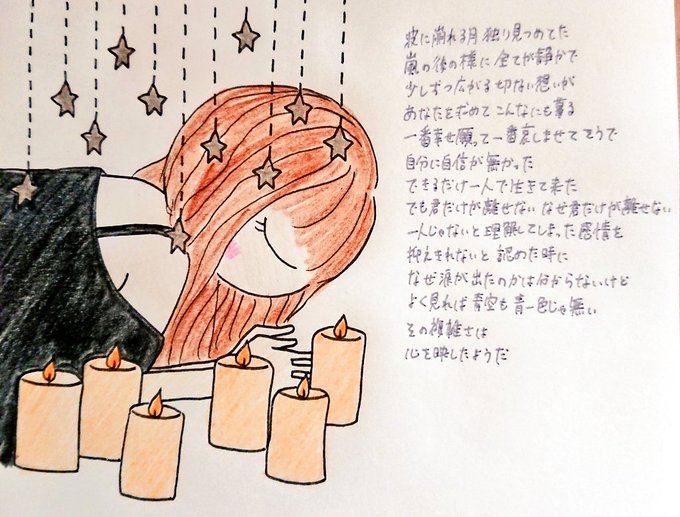 波に崩れる月 独り見つめてた
嵐の後の様に 全てが静かで
少しずつ広がる切ない想いが
あなたを求めて こんなにも募る
一番幸せ願って一番哀しませてそうで
自分に自信が無かった
できるだけ一人で生きて来た
でも君だけが離せない なぜ君だけが離せない
一人じゃないと理解してしまった感情を
抑えきれないと 認めた時に
なぜ涙が出たのかは分からないけど
よく見れば青空も青一色じゃ無い
その複雑さは
心を映したようだ